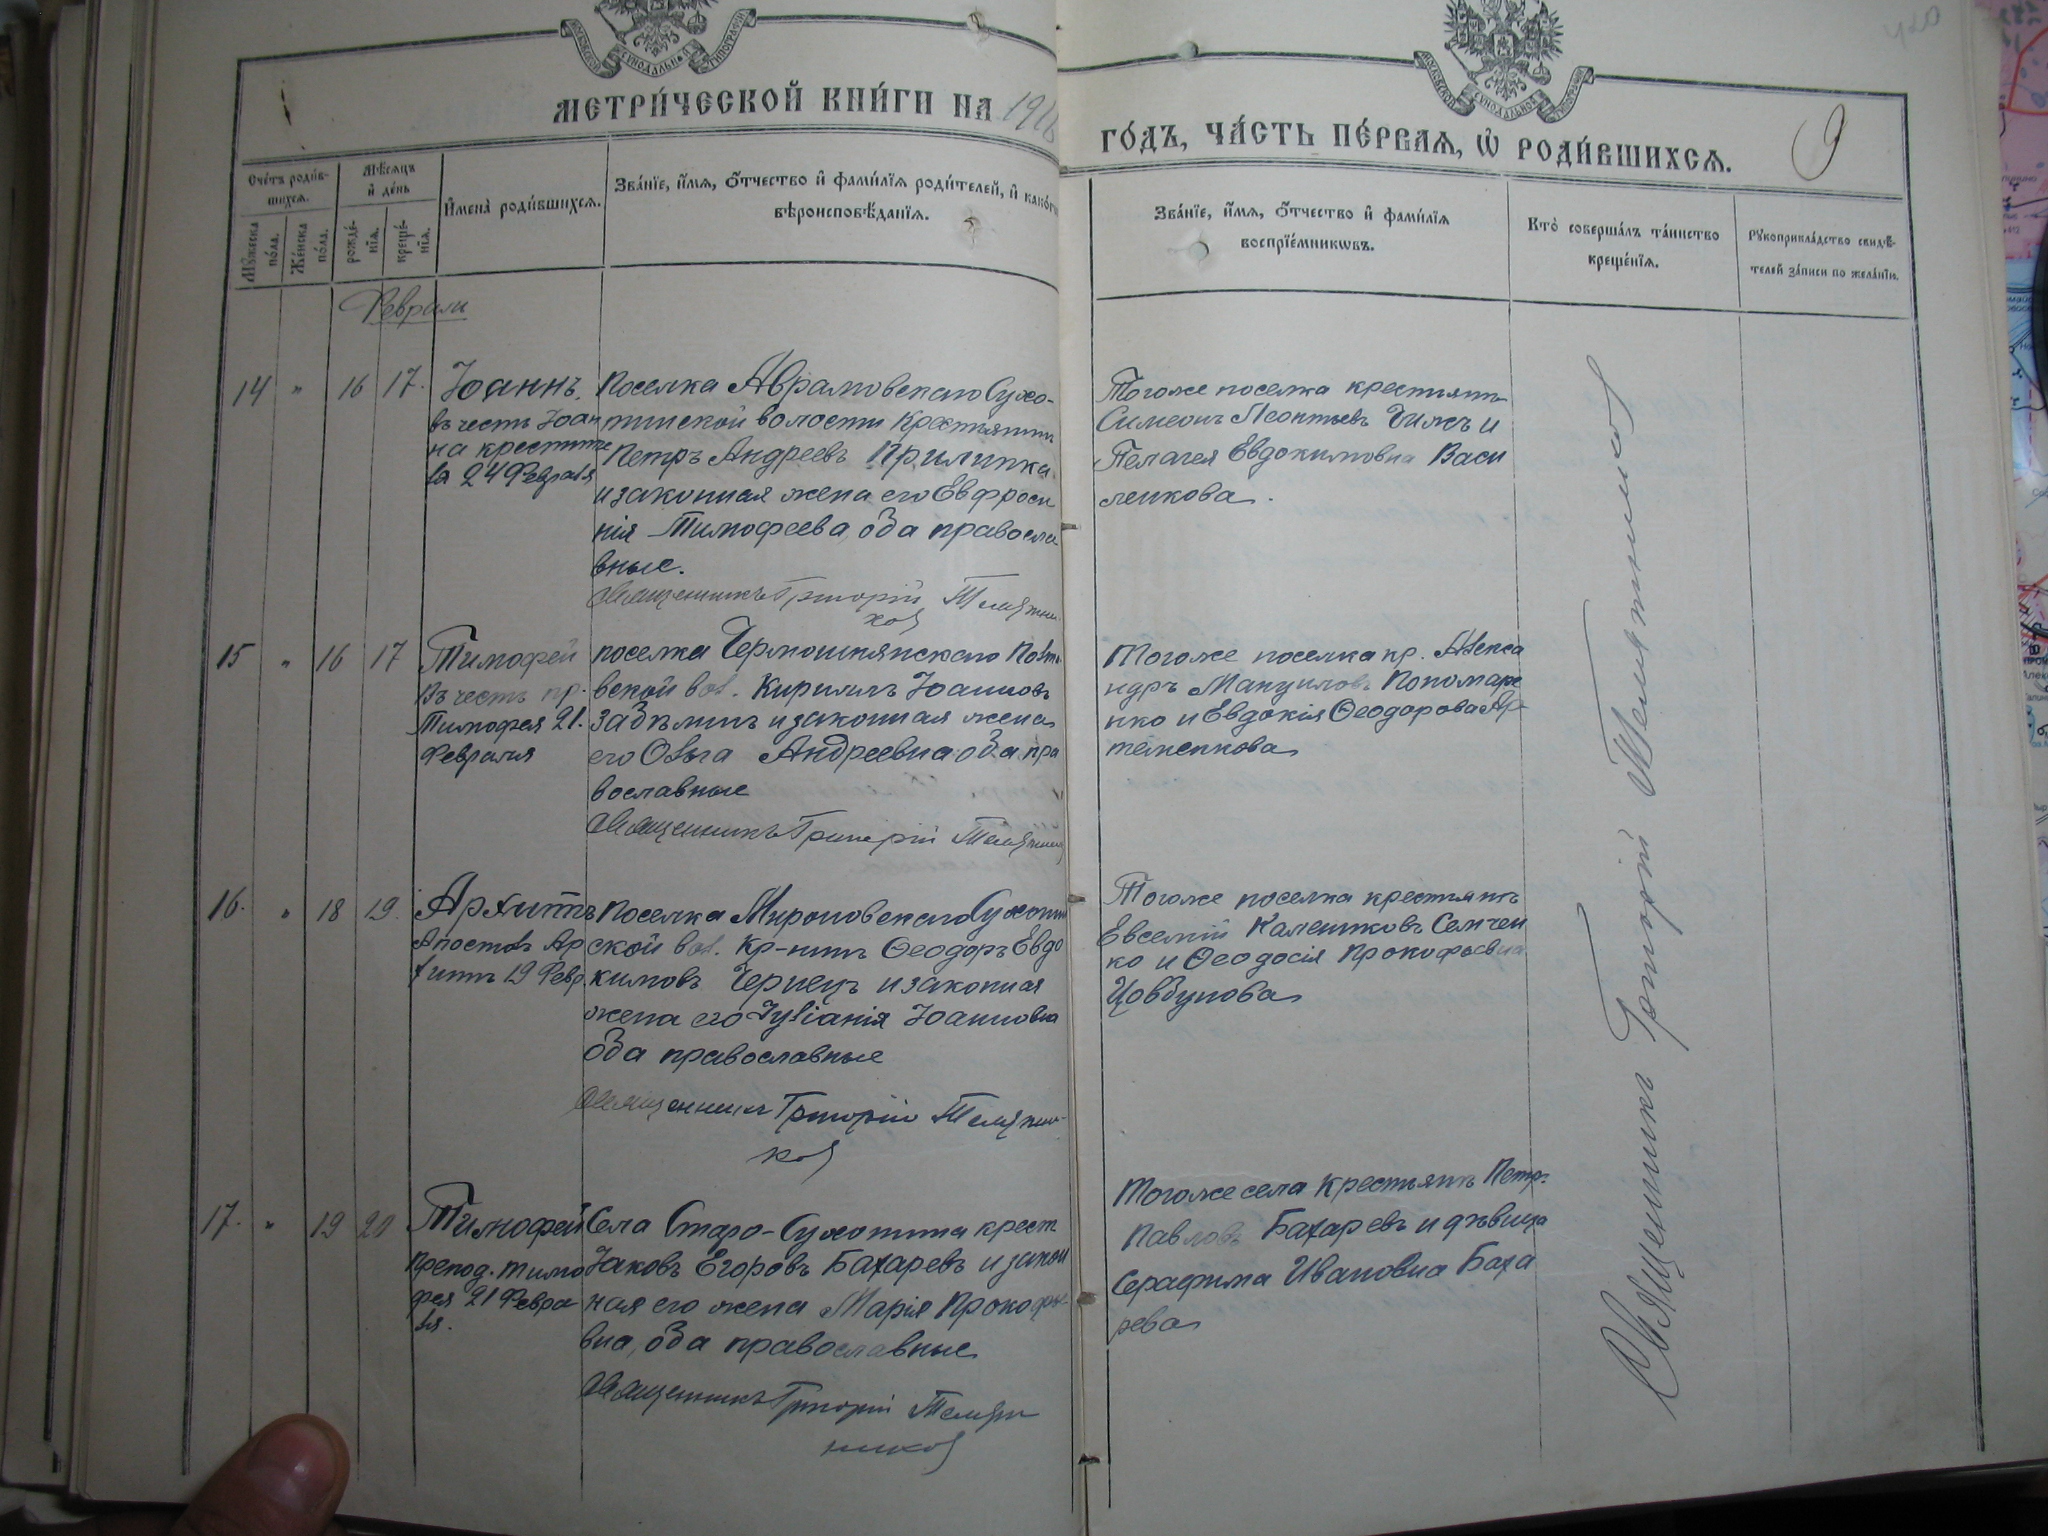 МОСКОВСКОЙ СУНОДАЛЬНОЙ ТИПОГРАФІИ
МЕТРИ́ЧЕСКОЙ КНИ́ГИ НА
ГО́ДЪ, ЧА́СТЬ ПЕ́РВАѦ, Ѽ РОДИ́ВШИХСѦ.
9
Сче́тъ роди́в-
шихсѧ.
Мꙋ́жеска по́ла.
Же́нска по́ла.
Мѣ́сѧцъ
и҆ де́нь
рожде́-
нїѧ.
креще́-
нїѧ.
И҆мена̀ роди́вшихсѧ.
Зва́нїе, и҆́мѧ, ѻ҆́тчество и҆ фами́лїѧ роди́телей, и҆
вѣроисповѣ́данїѧ.
Зва́нїе, и҆́мѧ, ѻ҆́тчество и҆ фами́лїѧ
воспрїе́мникѡвъ.
Кто̀ соверша́лъ та́инство
креще́нїѧ.
Рꙋкоприкла́дство свидѣ́-
телей за́писи по жела́нїю.
Февраль
14 " 16 17.
Іоаннъ.
въ честь Іоан
на крестите
ля 24 Февраля
Поселка Аврамовскаго Сухо-
тинской волости Крестьянинъ
Петръ Андреевъ Прилипка
и законная жена его Евфроси
нія Тимофеева, оба правосла
вные.
Священникъ Григорій Телятни
ков
Тогоже поселка крестьянъ
Симеонъ Леонтьевъ Чижъ и
Пелагея Евдокимовна Васи
ленкова.
15 " 16 17
Тимофей
Въ честь пр.
Тимофея 21.
Февраля
поселка Чермошнянскаго
вской вол. Кириллъ Іоанновъ
Забѣлинъ и законная жена
его Ольга Андреевна оба пра
вославные
Священникъ Григорій
Тогоже поселка кр. Алекса
ндръ Мануиловъ Пономаре
нко и Евдокія Ѳеодорова Ар-
теменкова
16. " 18 19.
Архипъ
Апостолъ Ар
хипъ 19 Февр.
Поселка Мироновскаго Сухотин
ской вол. кр-нинъ Ѳеодоръ Евдо
кимовъ Чернецъ и законная
жена его Іуліанія Іоанновна
оба православные
Священникъ Григорій Телятни-
ков
Тогоже поселка крестьянъ
Евсевій Семчен
ко и Ѳеодосія Прокофьевна
Цовбунова
17. " 19 20
Тимофей
препод. Тимо
фея 21 Февра
ля.
Села Старо-Сухотина крест
Іаковъ Егоровъ Бахаревъ и закон
ная его жена Марія Прокофь-
вна, оба православные
Священникъ Григорій Телят
ников
Тогоже села крестьянъ Петръ
Павловъ Бахаревъ и дѣвица
Серафима Ивановна Баха
рева
Священникъ Григорій Телятников